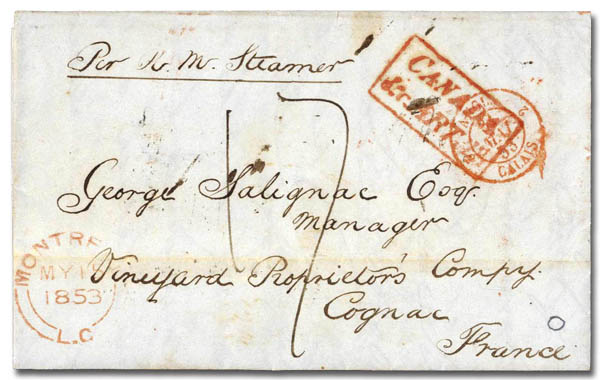 Per R. M. Steamer
CANADA
&c. ART.
CALAIS
George Salignac Esqr.
Manager
Vineyard Proprietor's Compy.
Cognac
France
MONTRE
MY
1853
L.C
17